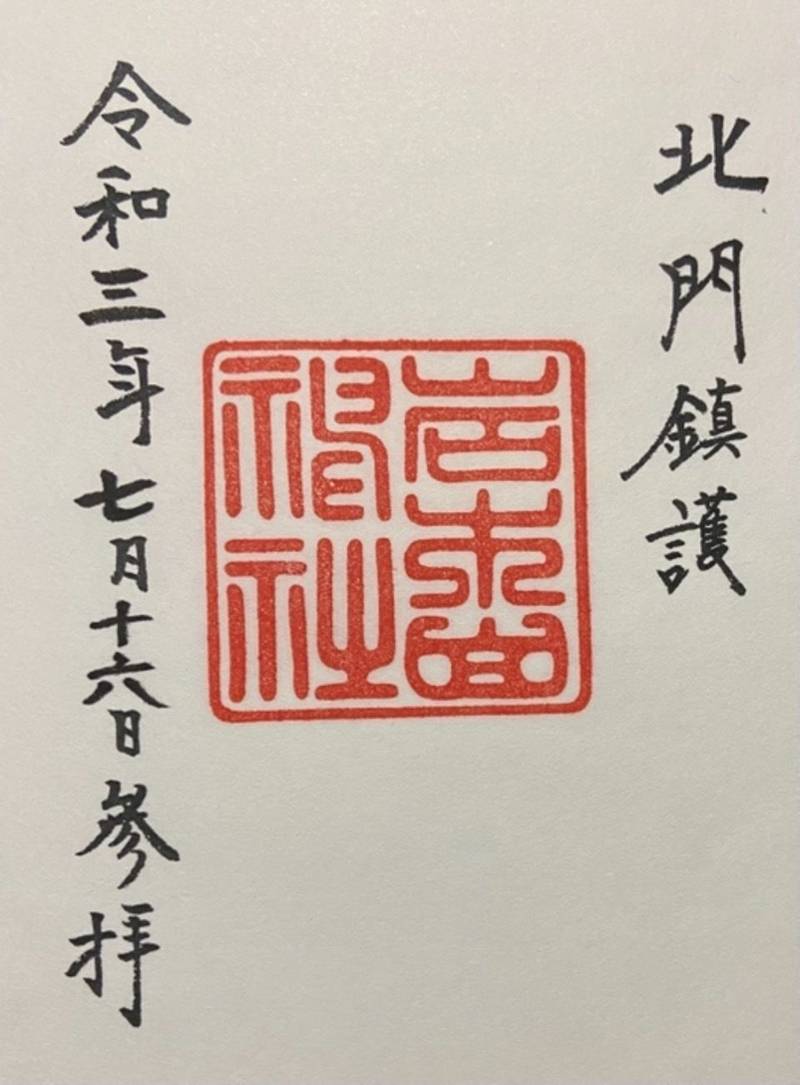 北門鎮護
岩木山
神社
令和三年七月十六日参拝